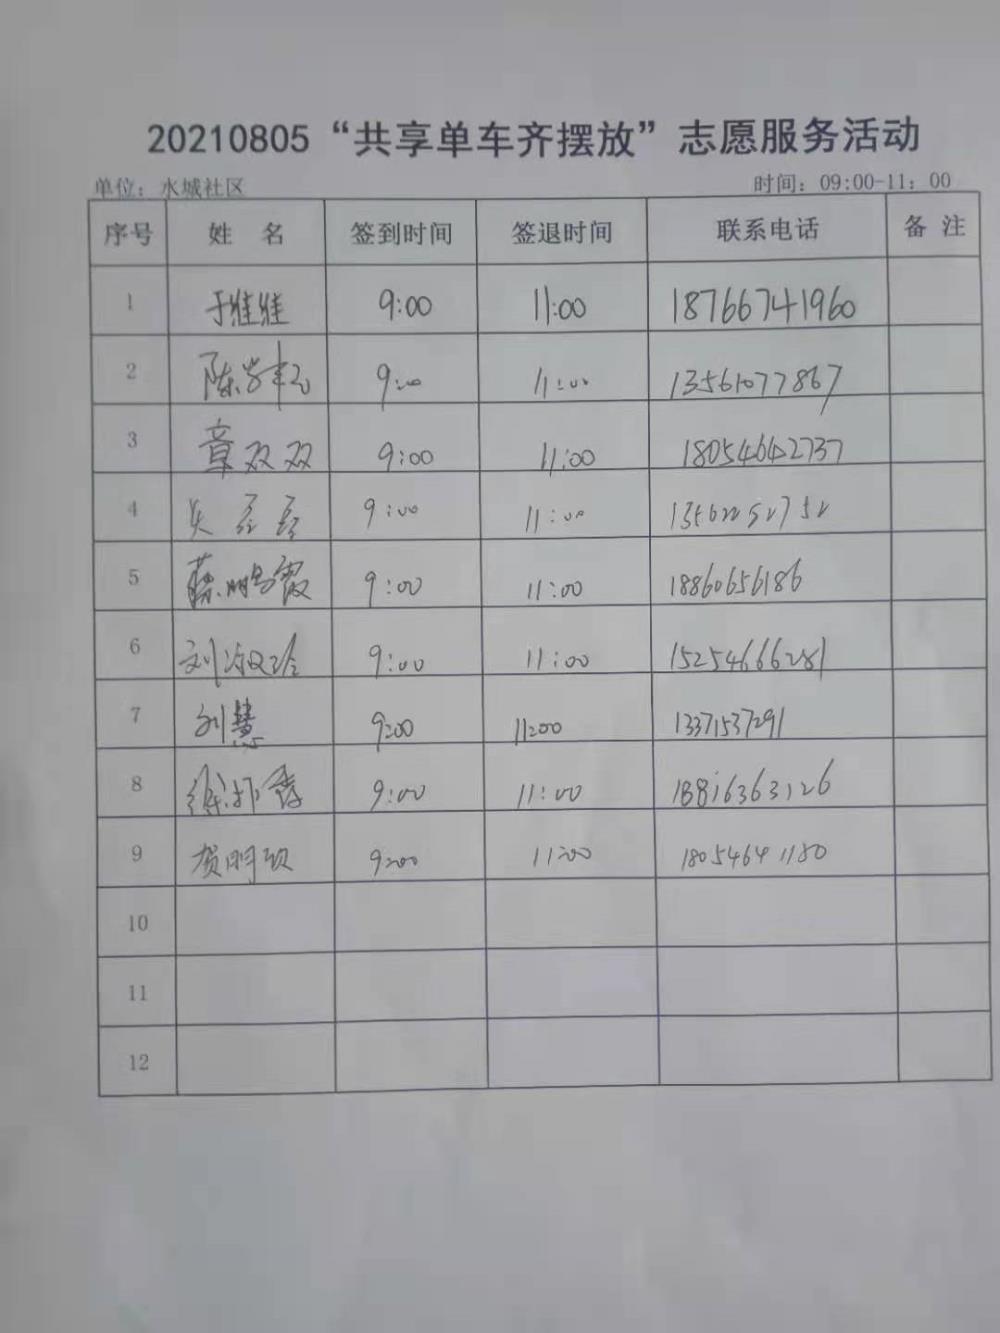 20210805“共享单车齐摆放”志愿服务活动
单位：水城社区 时间：09:00-11：00
序号 姓 名 签到时间 签退时间 联系电话 备 注
1 于维维 9:00 11:00 18766741960
2 9:00 11:00 13561077867
3 章双双 9:00 11:00 18054642737
4 9:00 11:00
5 9:00 11:00 18860656186
6 9:00 11:00 15254666281
7 刘慧 9:00 11:00 13371537291
8 9:00 11:00 18816363126
9 9:00 11:00 18054641180
10
11
12